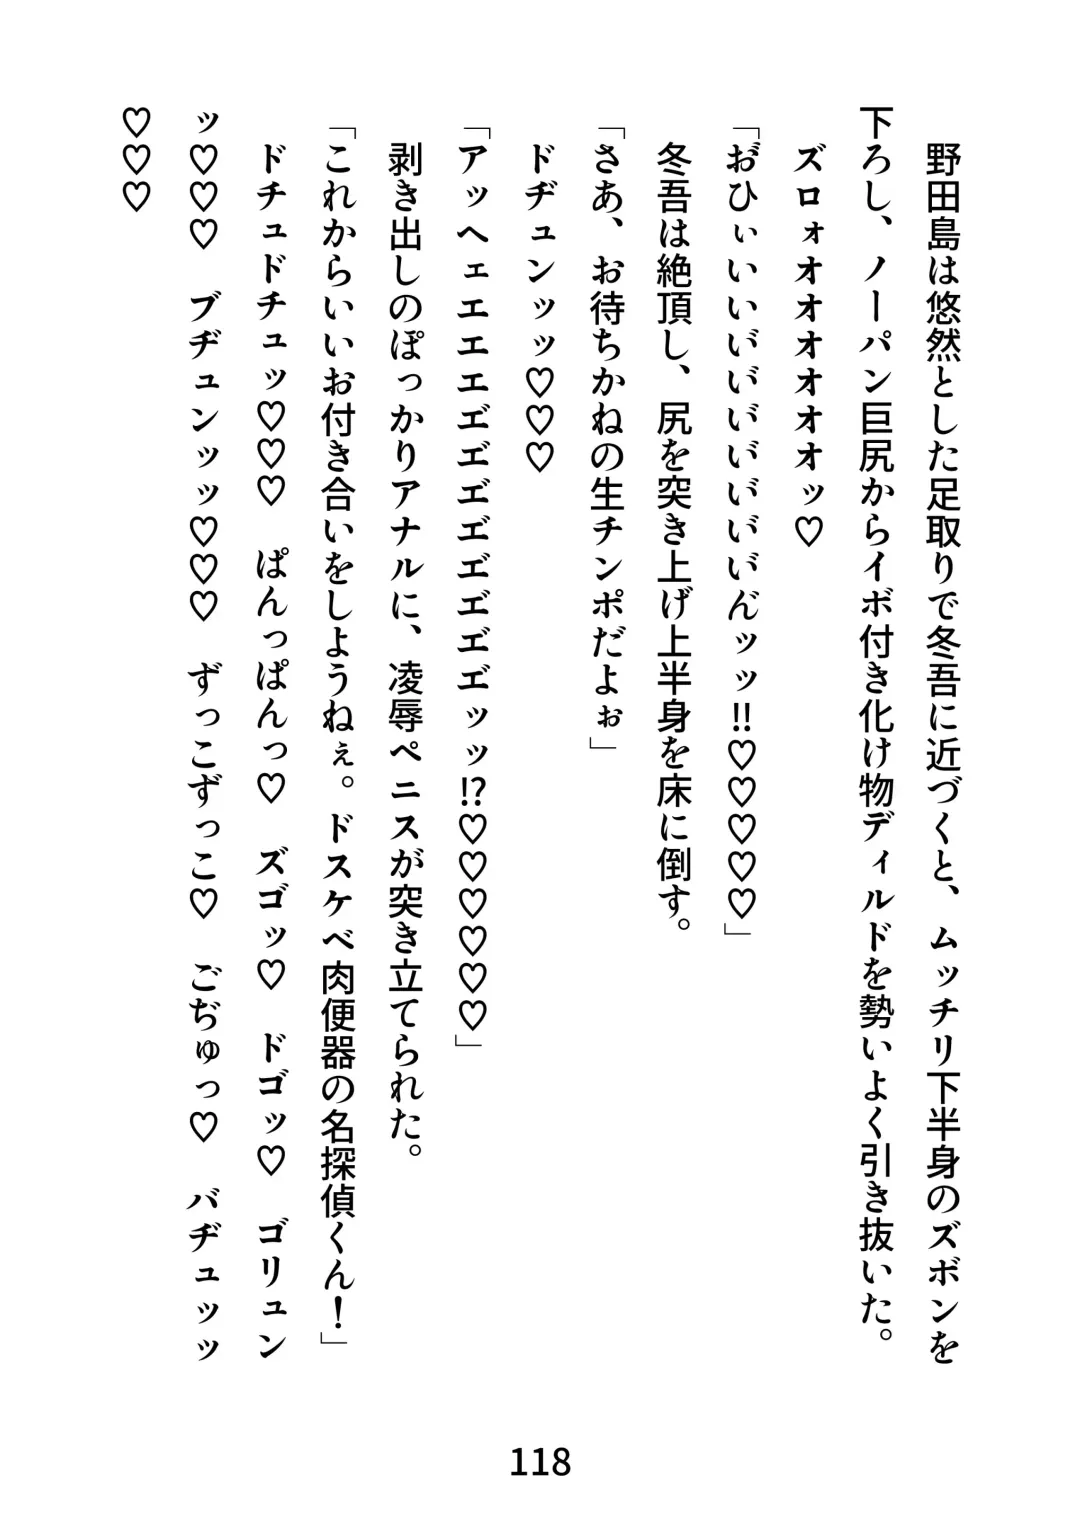 野田島は悠然とした足取りで冬吾に近づくと、ムッチリ下半身のズボンを
下ろし、ノーパン巨尻からイボ付き化け物ディルドを勢いよく引き抜いた。
ズロォオオオオオオッ♡
「お゙ひぃいいい゙い゙い゙い゙い゙い゙い゙ん゙ッッ!!♡♡♡♡♡」
冬吾は絶頂し、尻を突き上げ上半身を床に倒す。
「さあ、お待ちかねの生チンポだよぉ」
ドヂュンッッ♡♡♡
「アッヘェエエエエ゙エ゙エ゙エ゙エ゙エ゙エ゙エ゙ッッ!?♡♡♡♡♡♡」
剥き出しのぽっかりアナルに、凌辱ペニスが突き立てられた。
「これからいいお付き合いをしようねぇ。ドスケベ肉便器の名探偵くん!」
ドチュドチュッ♡♡♡　ぱんっぱんっ♡　ズゴッ♡　ドゴッ♡　ゴリュン
ッ♡♡♡　ブヂュンッッ♡♡♡　ずっこずっこ♡　ごぢゅっ♡　バヂュッッ
♡♡♡
118